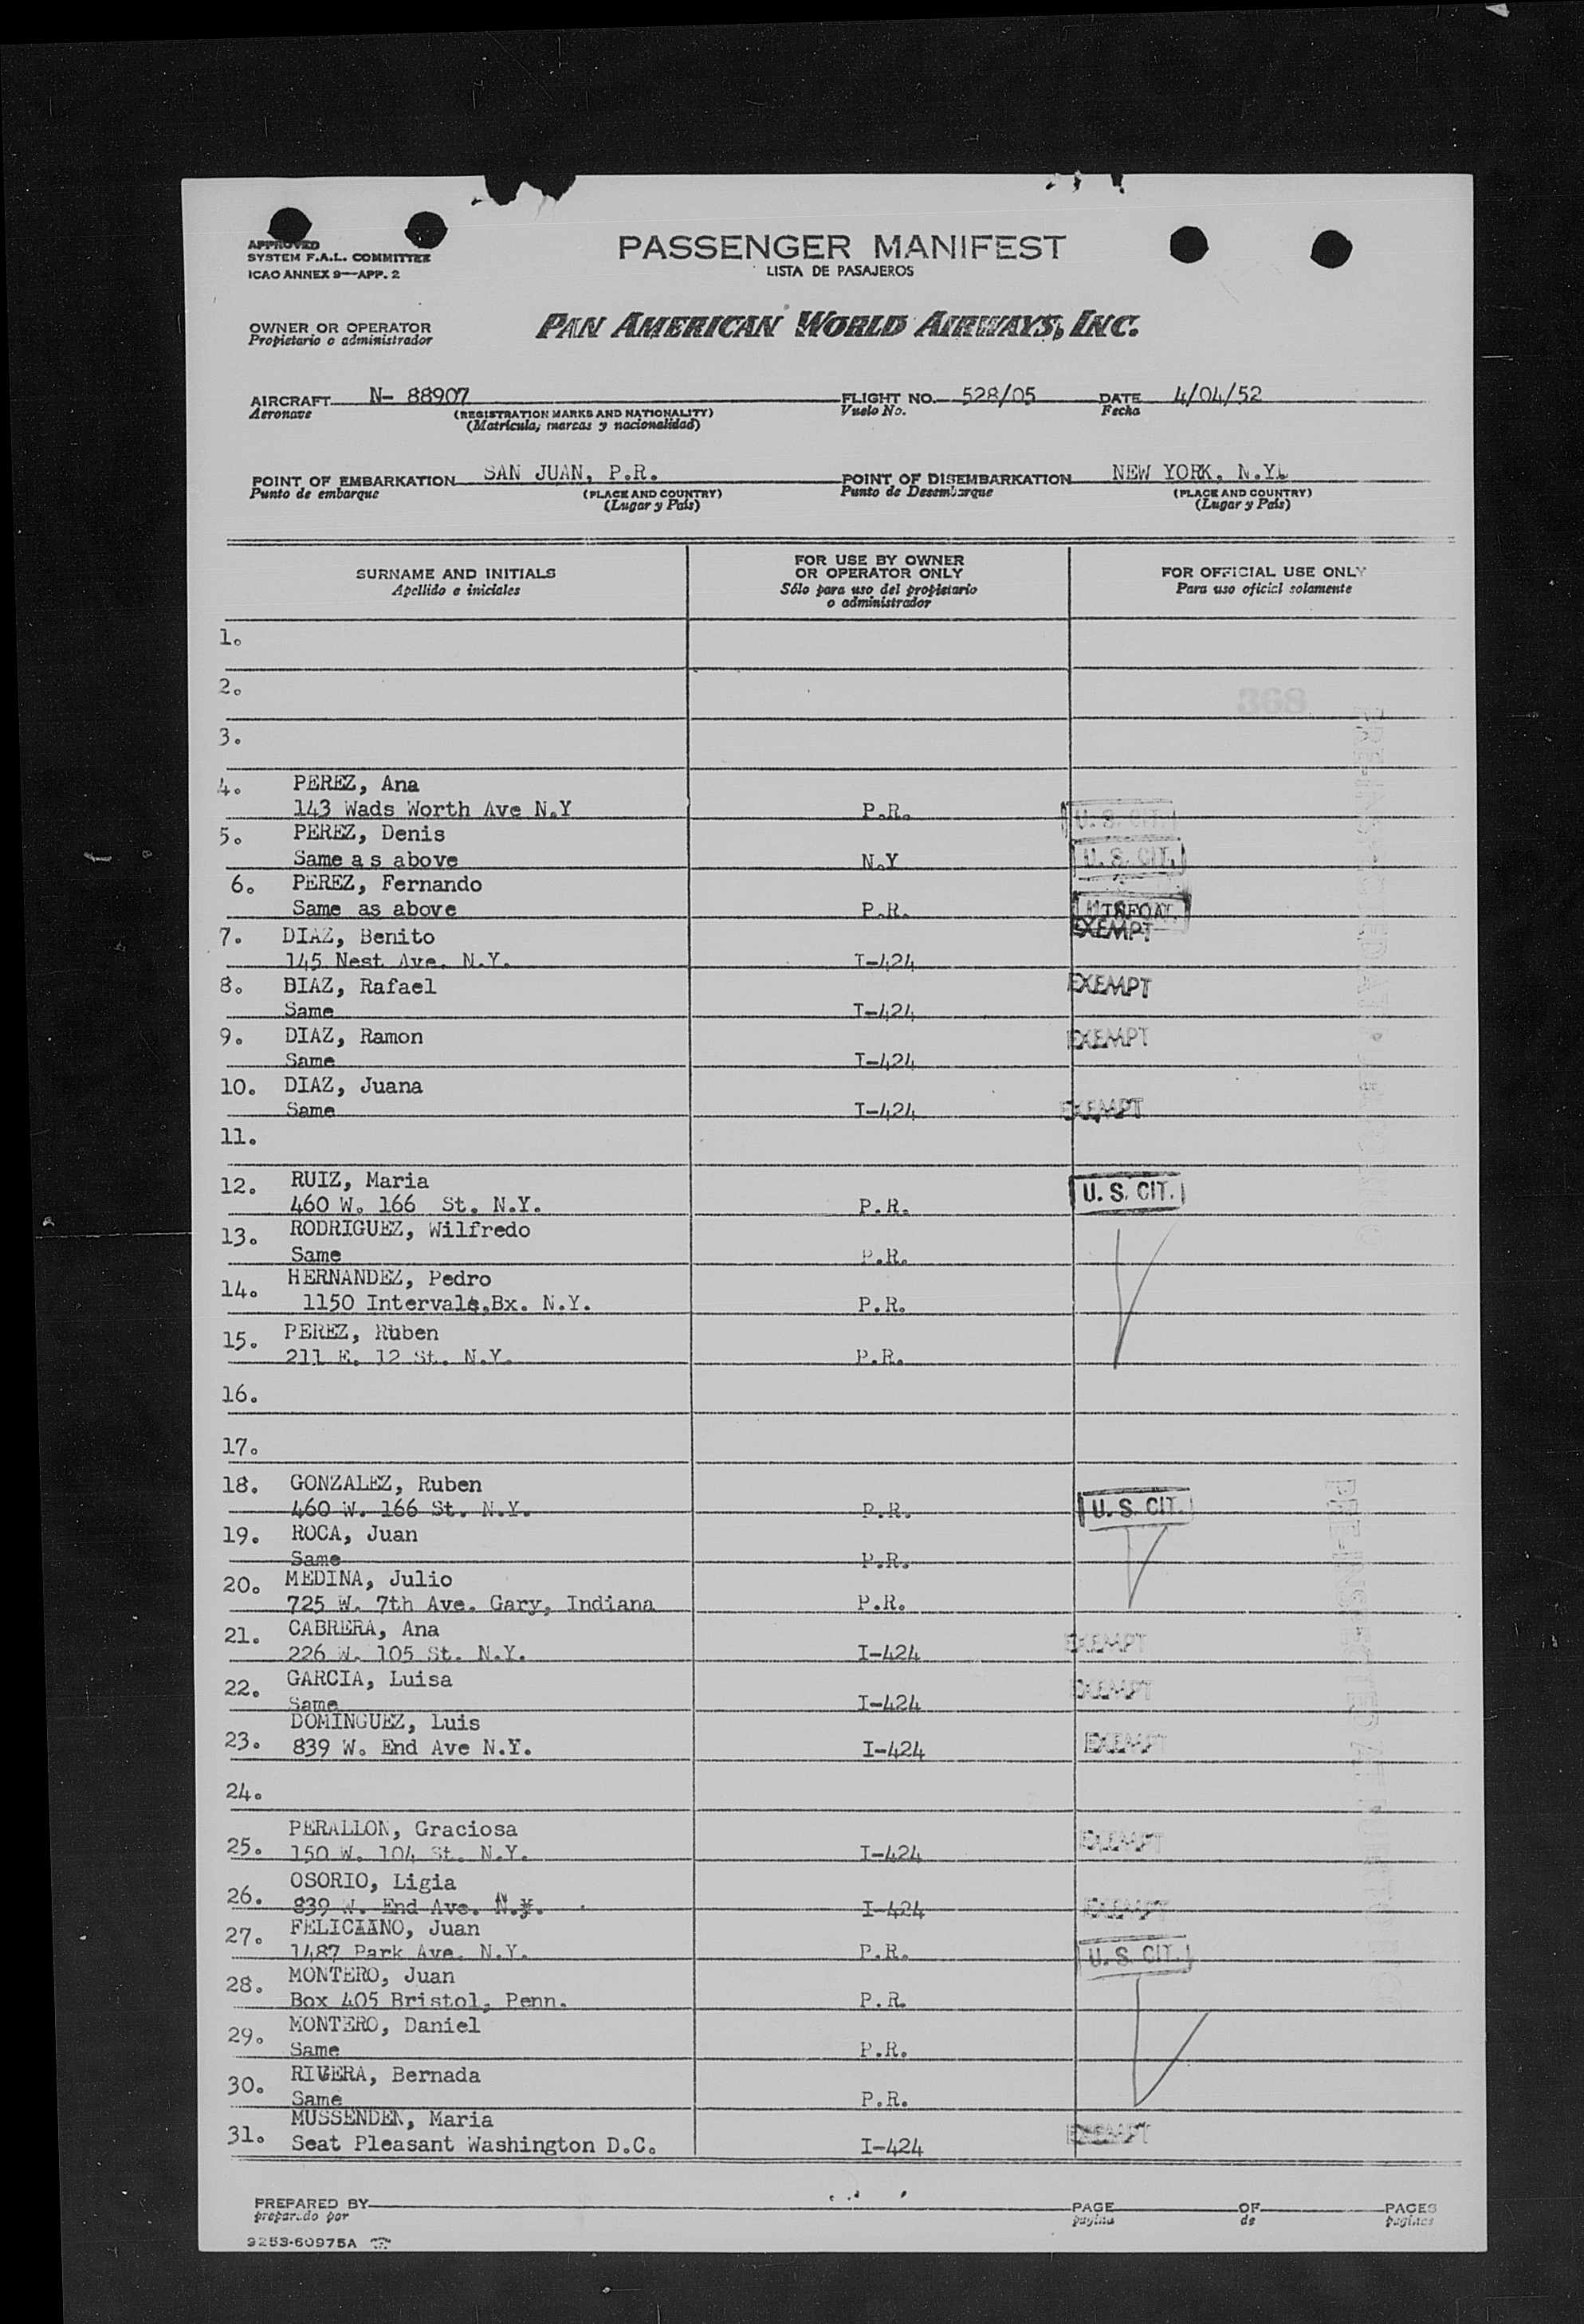 PASSENGER MANIFEST
LISTA DE PASAJEROS
APPROVED
SYSTEM F.A.L. COMMITTEE
ICAO ANNEX 9—APP. 2
OWNER OR OPERATOR
Propietario o administrador
PAN AMERICAN WORLD AIRWAYS, INC.
AIRCRAFT N- 88907 FLIGHT NO. 528/05 DATE 4/04/52
Aeronave (REGISTRATION MARKS AND NATIONALITY) Vuelo No. Fecha
(Matrícula, marcas y nacionalidad)
POINT OF EMBARKATION SAN JUAN, P.R. POINT OF DISEMBARKATION NEW YORK, N.Y.
Punto de embarque (PLACE AND COUNTRY) Punto de Desembarque (PLACE AND COUNTRY)
(Lugar y País) (Lugar y País)
SURNAME AND INITIALS FOR USE BY OWNER OR OPERATOR ONLY FOR OFFICIAL USE ONLY
Apellido e iniciales Sólo para uso del propietario o administrador Para uso oficial solamente
1.
2.
368
3.
4. PEREZ, Ana
143 Wads Worth Ave N.Y P.R. U. S. CIT.
5. PEREZ, Denis
Same as above N.Y U. S. CIT.
6. PEREZ, Fernando
Same as above P.R.
7. DIAZ, Benito EXEMPT
145 Nest Ave. N.Y. I-424
8. DIAZ, Rafael EXEMPT
Same I-424
9. DIAZ, Ramon EXEMPT
Same I-424
10. DIAZ, Juana
Same I-424 EXEMPT
11.
12. RUIZ, Maria U. S. CIT.
460 W. 166 St. N.Y. P.R.
13. RODRIGUEZ, Wilfredo
Same P.R.
14. HERNANDEZ, Pedro
1150 Intervale,Bx. N.Y. P.R.
15. PEREZ, Ruben
211 E. 12 St. N.Y. P.R.
16.
17.
18. GONZALEZ, Ruben
460 W. 166 St. N.Y. P.R. U. S. CIT.
19. ROCA, Juan
Same P.R.
20. MEDINA, Julio
725 W. 7th Ave. Gary, Indiana P.R.
21. CABRERA, Ana EXEMPT
226 W. 105 St. N.Y. I-424
22. GARCIA, Luisa EXEMPT
Same I-424
23. DOMINGUEZ, Luis
839 W. End Ave N.Y. I-424 EXEMPT
24.
25. PERALLON, Graciosa EXEMPT
150 W. 104 St. N.Y. I-424
26. OSORIO, Ligia
839 W. End Ave. N.Y. I-424 EXEMPT
27. FELICIANO, Juan
1487 Park Ave. N.Y. P.R. U. S. CIT.
28. MONTERO, Juan
Box 405 Bristol, Penn. P.R.
29. MONTERO, Daniel
Same P.R.
30. RIVERA, Bernada
Same P.R.
31. MUSSENDEN, Maria EXEMPT
Seat Pleasant Washington D.C. I-424
PREPARED BY PAGE OF PAGES
preparado por pagina de paginas
9253-60975A